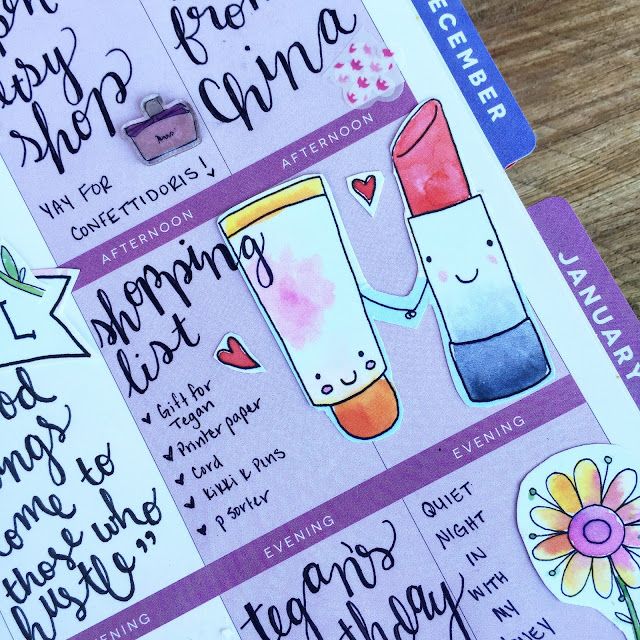 shop
from
China
DECEMBER
YAY FOR
CONFETTIDORIS!
AFTERNOON
AFTERNOON
JANUARY
shopping
list
Gift for
Tegan
Printer paper
Cord
Kikki K Pins
p sorter
L
come to
those who
hustle”
EVENING
EVENING
EVENING
tegan's
QUIET
NIGHT
IN
WITH
MY